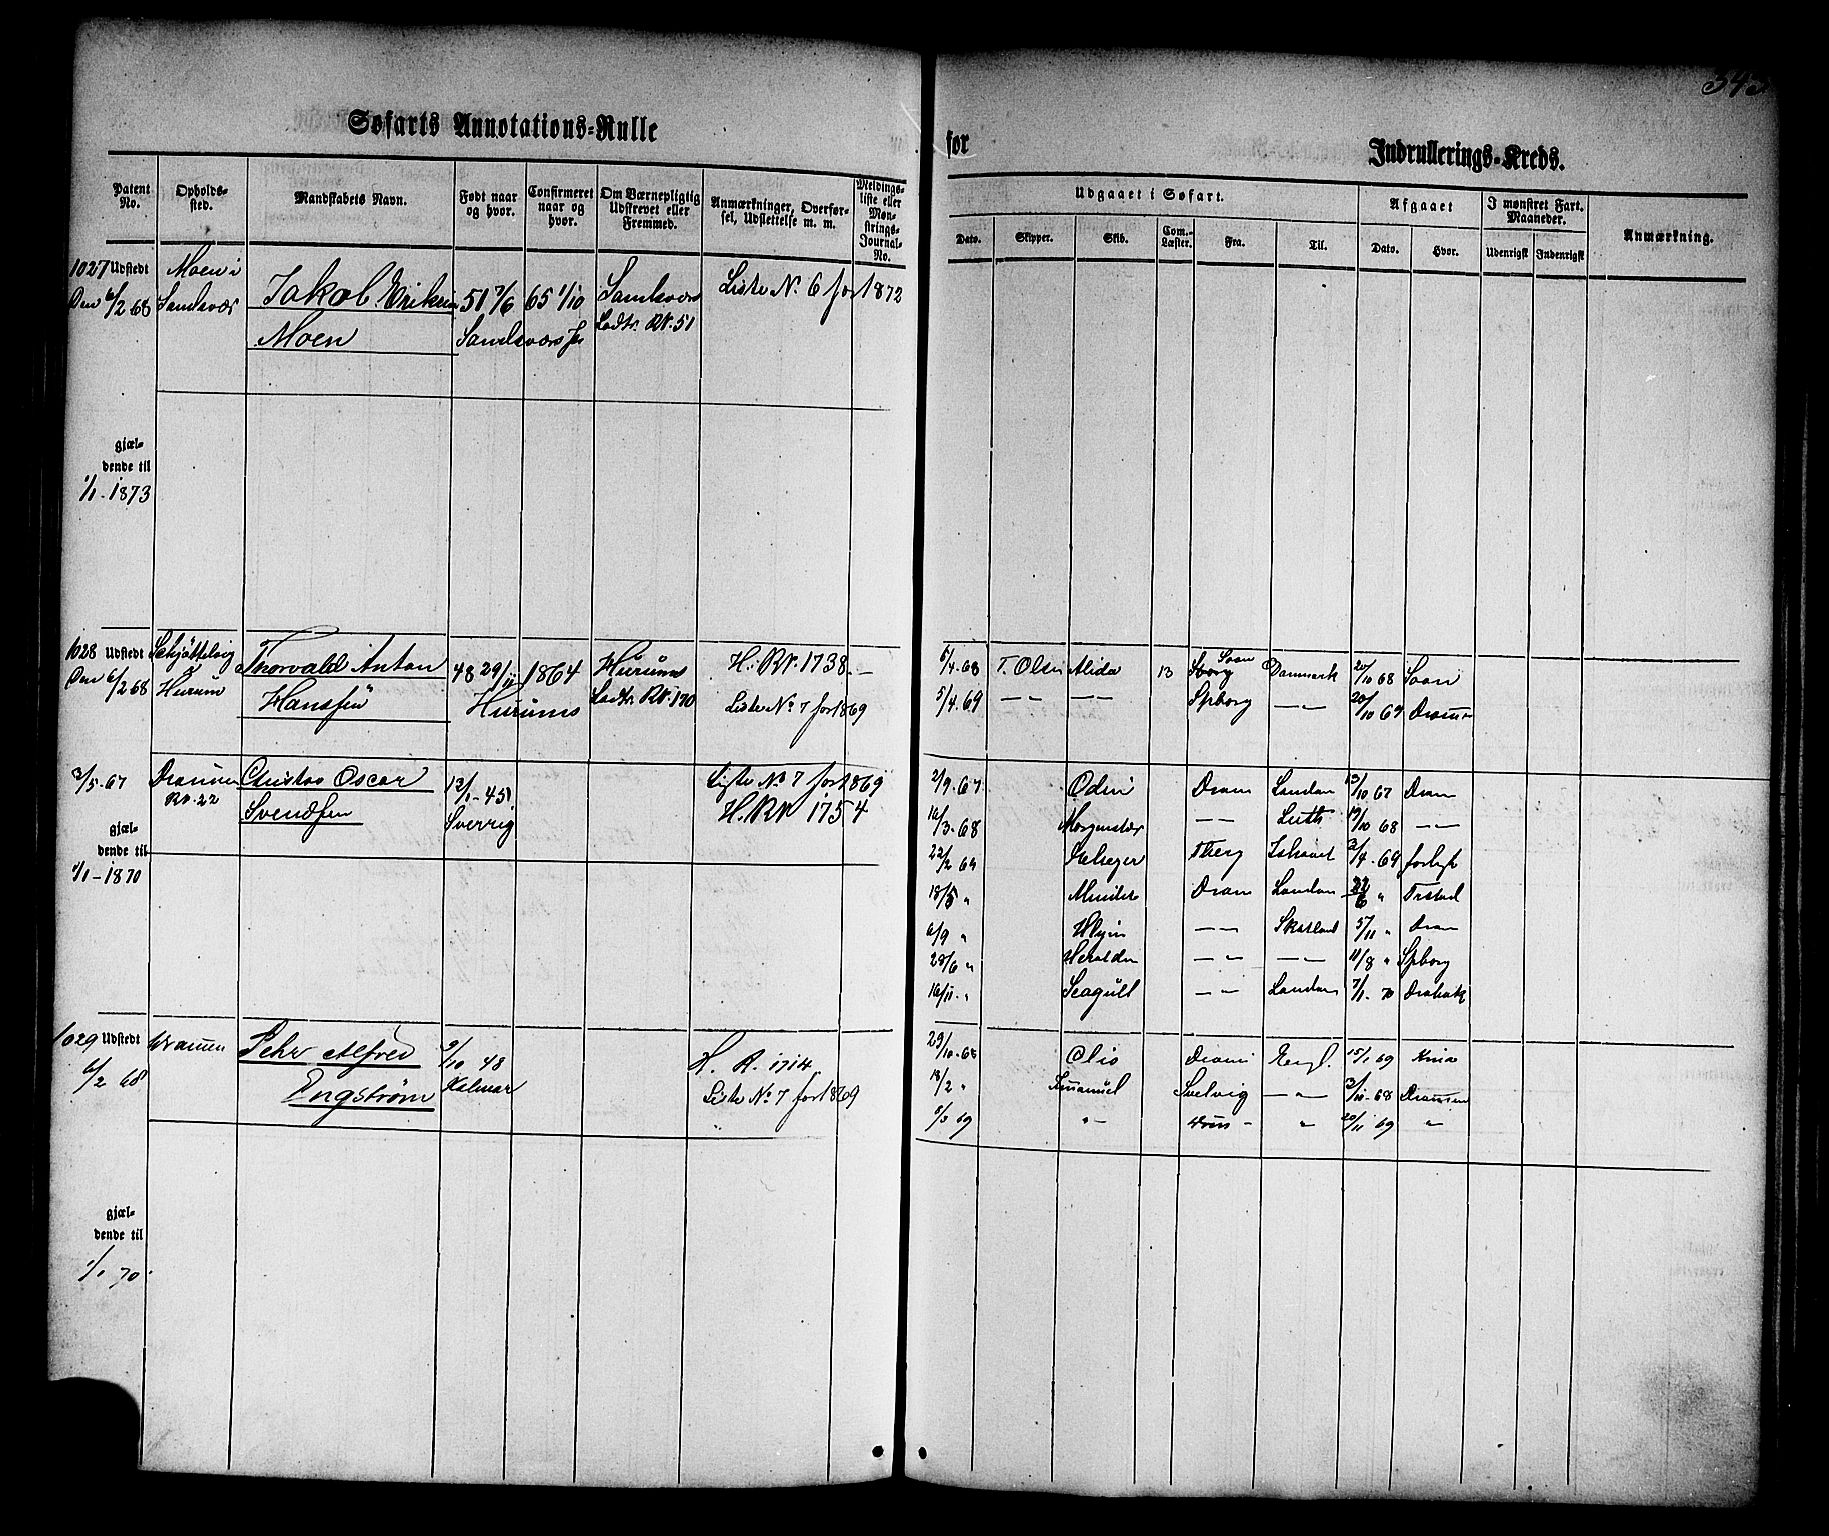 343
Søfarts Annotations-Rulle
for
Indrullerings-Kreds.
Patent No.
Opholds-sted.
Mandskabets Navn.
Født naar og hvor.
Confirmeret naar og hvor.
Om Værnepligtig Udskrevet eller Fremmed.
Anmærkninger, Overførsel, Udslettelse m. m.
Meldings-liste eller Mønstrings-Journal-No.
Udgaaet i Søfart.
Afgaaet
I mønstret Fart. Maaneder.
Anmærkning.
Dato. Skipper. Skib. Com.-Læster. Fra. Til. Dato. Hvor. Udenrigsk Indenrigsk
1027 Udstedt Moen i Jakob Eriksen 51 7/6 65 1/10 Sandsvær Liste No. 6 for 1872
Den 6/2 68 Sandsvær Moen Sandsvær Lodtr. RN. 51
gjæl-
dende til
1/1-1873
1028 Udstedt Thorvald Anton 48 29/11 1864 Hurums H. RN. 1738.
Den 6/2 68 Hurum Hanssen Hurums Lodtr. RN. 170 Liste No 7 for 1869
6/4 68 T. Olsen Alida 13 Soon Danmark 20/10 68 Soon
5/4 69 — — — — Spborg — " — 20/10 69 Dramn
3/5-67 Drammen Oscar 12/1-45 Liste No 7 for 1869
RN. 22 Svendsen Sverrig H. RN 1754
gjæl-
dende til
1/1-1870
2/9 67 Odin Dram London 13/10 67 Dram
16/3 68 Morgenstær — — Leith 19/10 68 — —
22/2 69 Tberg Ishavet 3/4 69 forlyst
18/5 " Dram London 22/6 "
6/9 " — — Skotland 5/11 " Dram
28/6 " — " — — — 11/8 " Spborg
16/11 " Seagull — " — London 7/1 70 Drøbak
1029 Udstedt Drammen Pehr Alfred 9/10 48 H. R. 1714
6/2 68 Engstrøm Kalmar Liste No 7 for 1869
29/10 68 Clio Dram Engl. 15/1 69
18/2 " Emanuel Svelvig — " — 13/10-68 Drammen
5/3 69 " — Dram — " 20/11 69 "
gjæl-
dende til
1/1 70